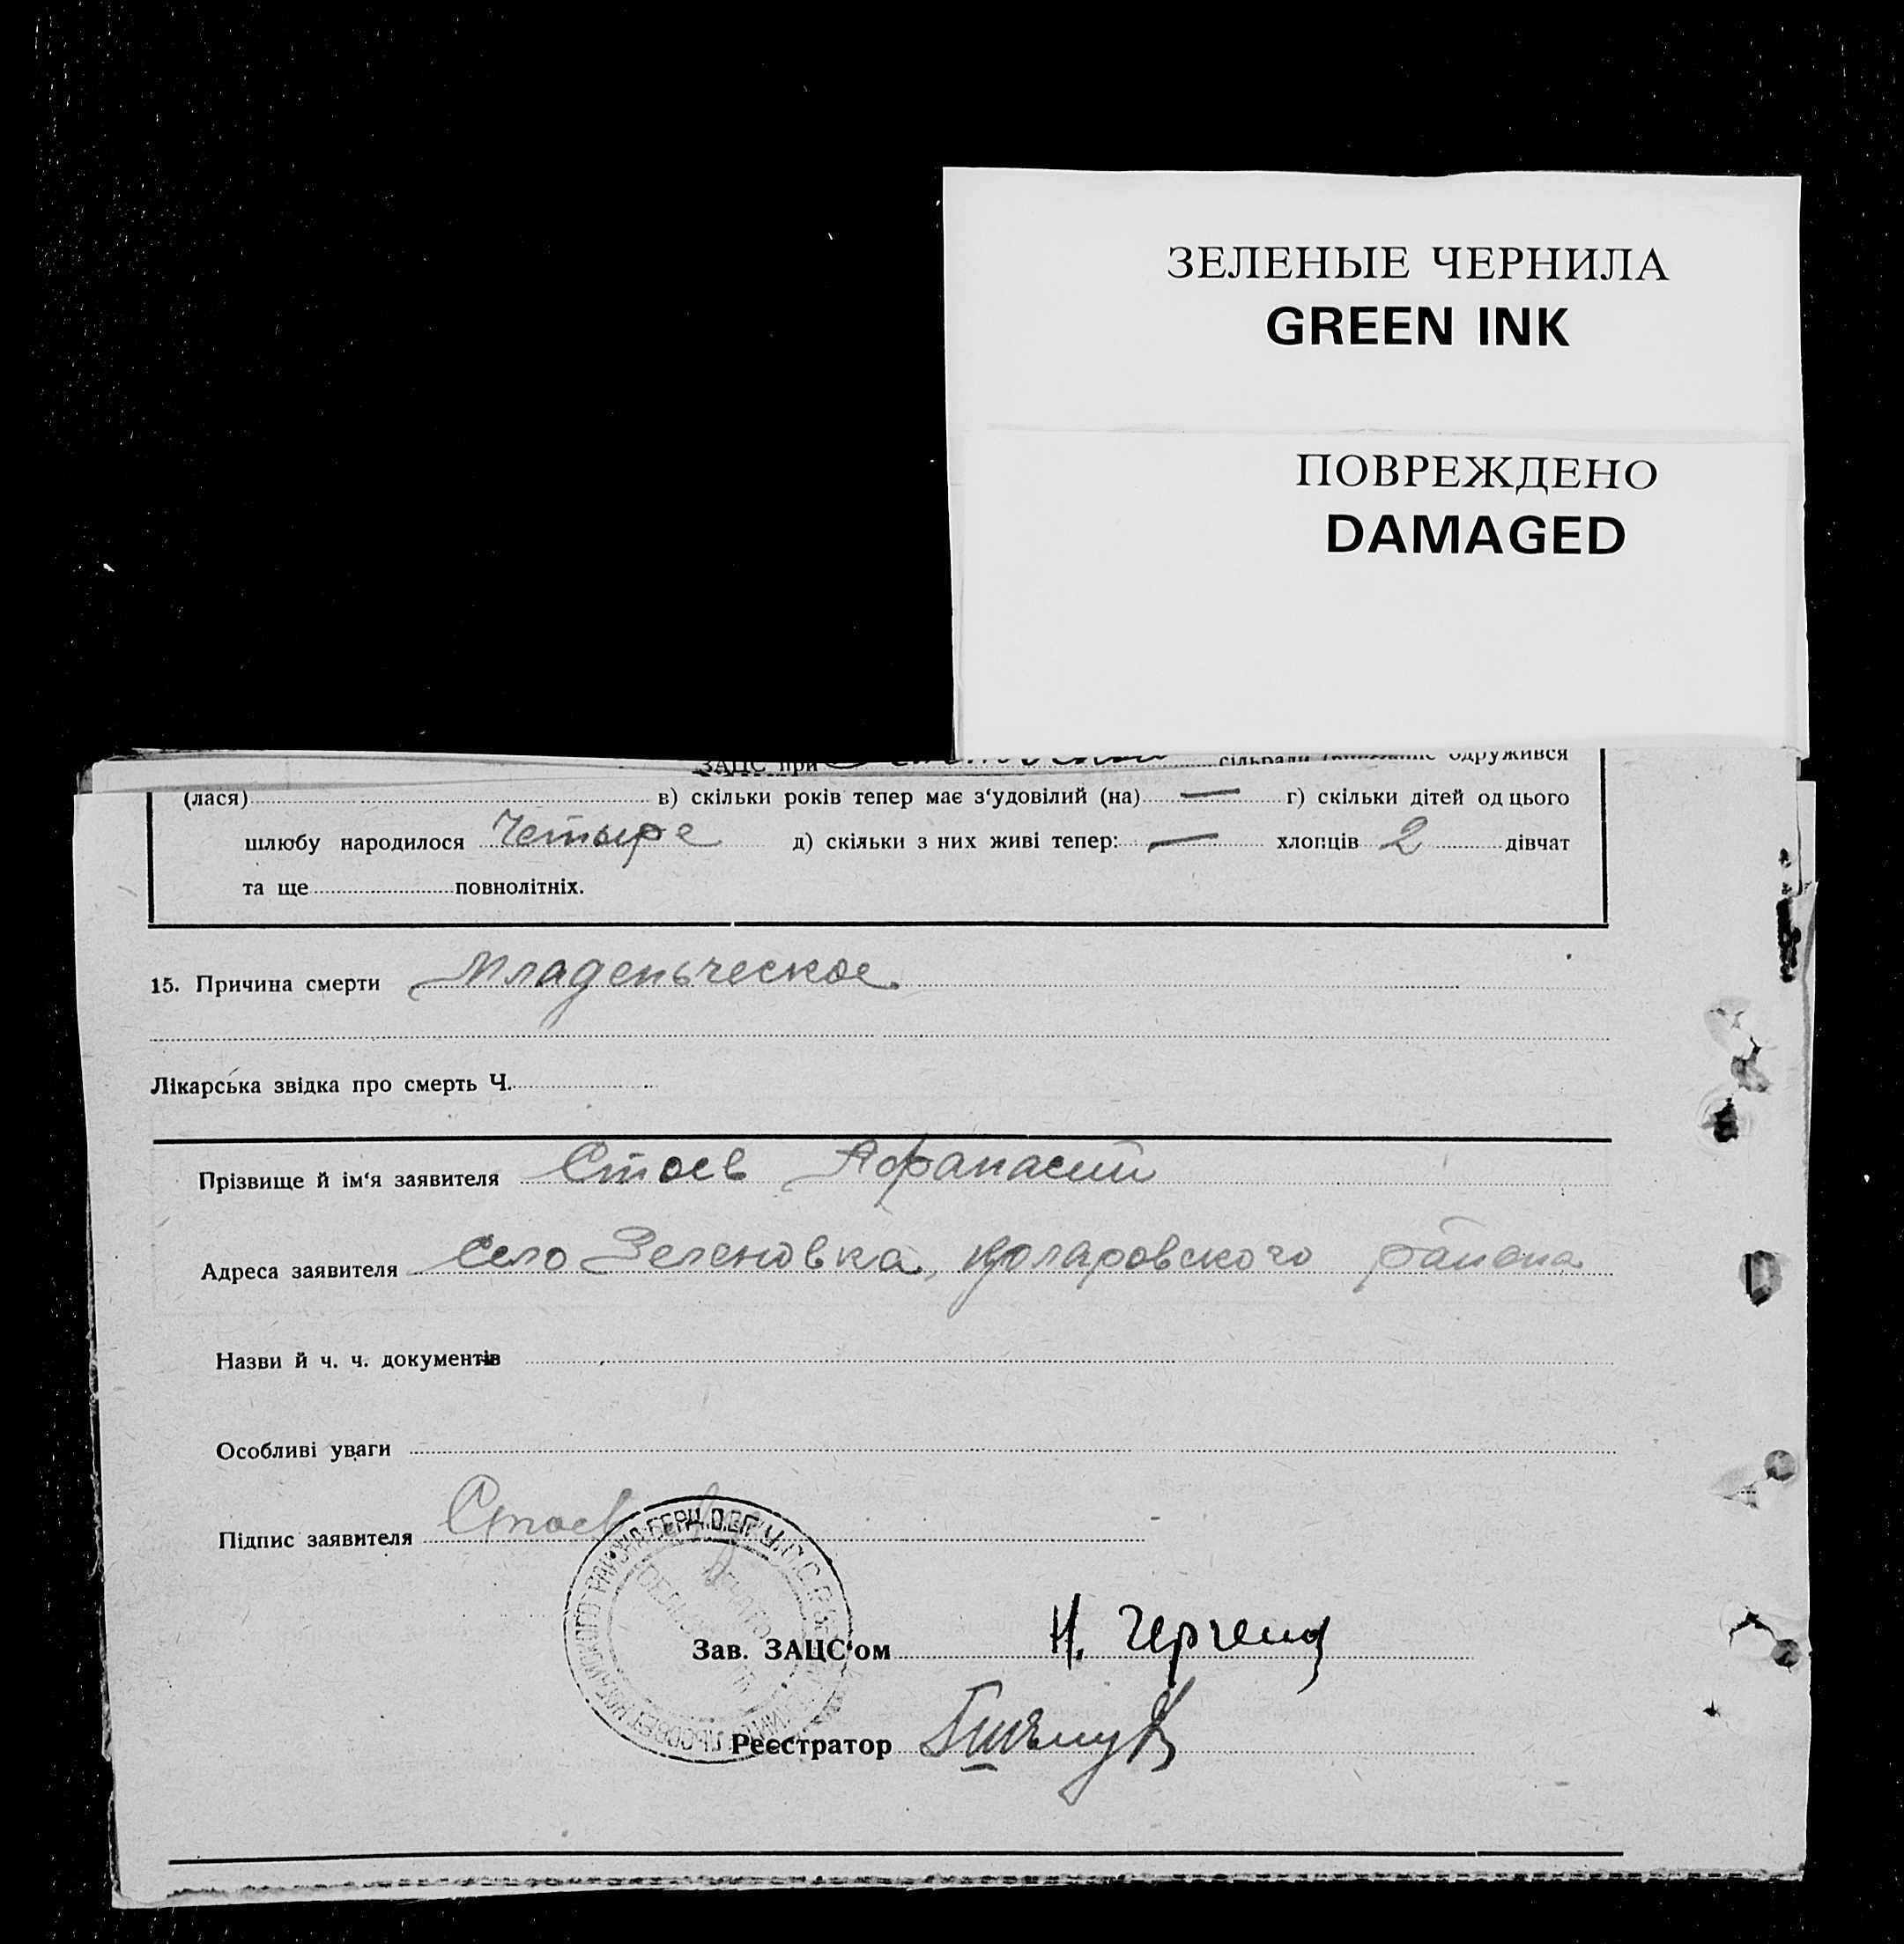 ЗЕЛЕНЫЕ ЧЕРНИЛА
GREEN INK
ПОВРЕЖДЕНО
DAMAGED
ЗАЦС при сільради одружився
(лася) в) скільки років тепер має з‘удовілий (на) — г) скільки дітей од цього
шлюбу народилося Четыре д) скільки з них живі тепер: — хлопців 2 дівчат
та ще повнолітніх.
15. Причина смерти Младеньческое
Лікарська звідка про смерть Ч.
Прізвище й ім‘я заявителя Стоев Афанасий
Адреса заявителя село Зеленовка, Коларовского района
Назви й ч. ч. документів
Особливі уваги
Підпис заявителя Стоев
Зав. ЗАЦС‘ом Н.
Реєстратор